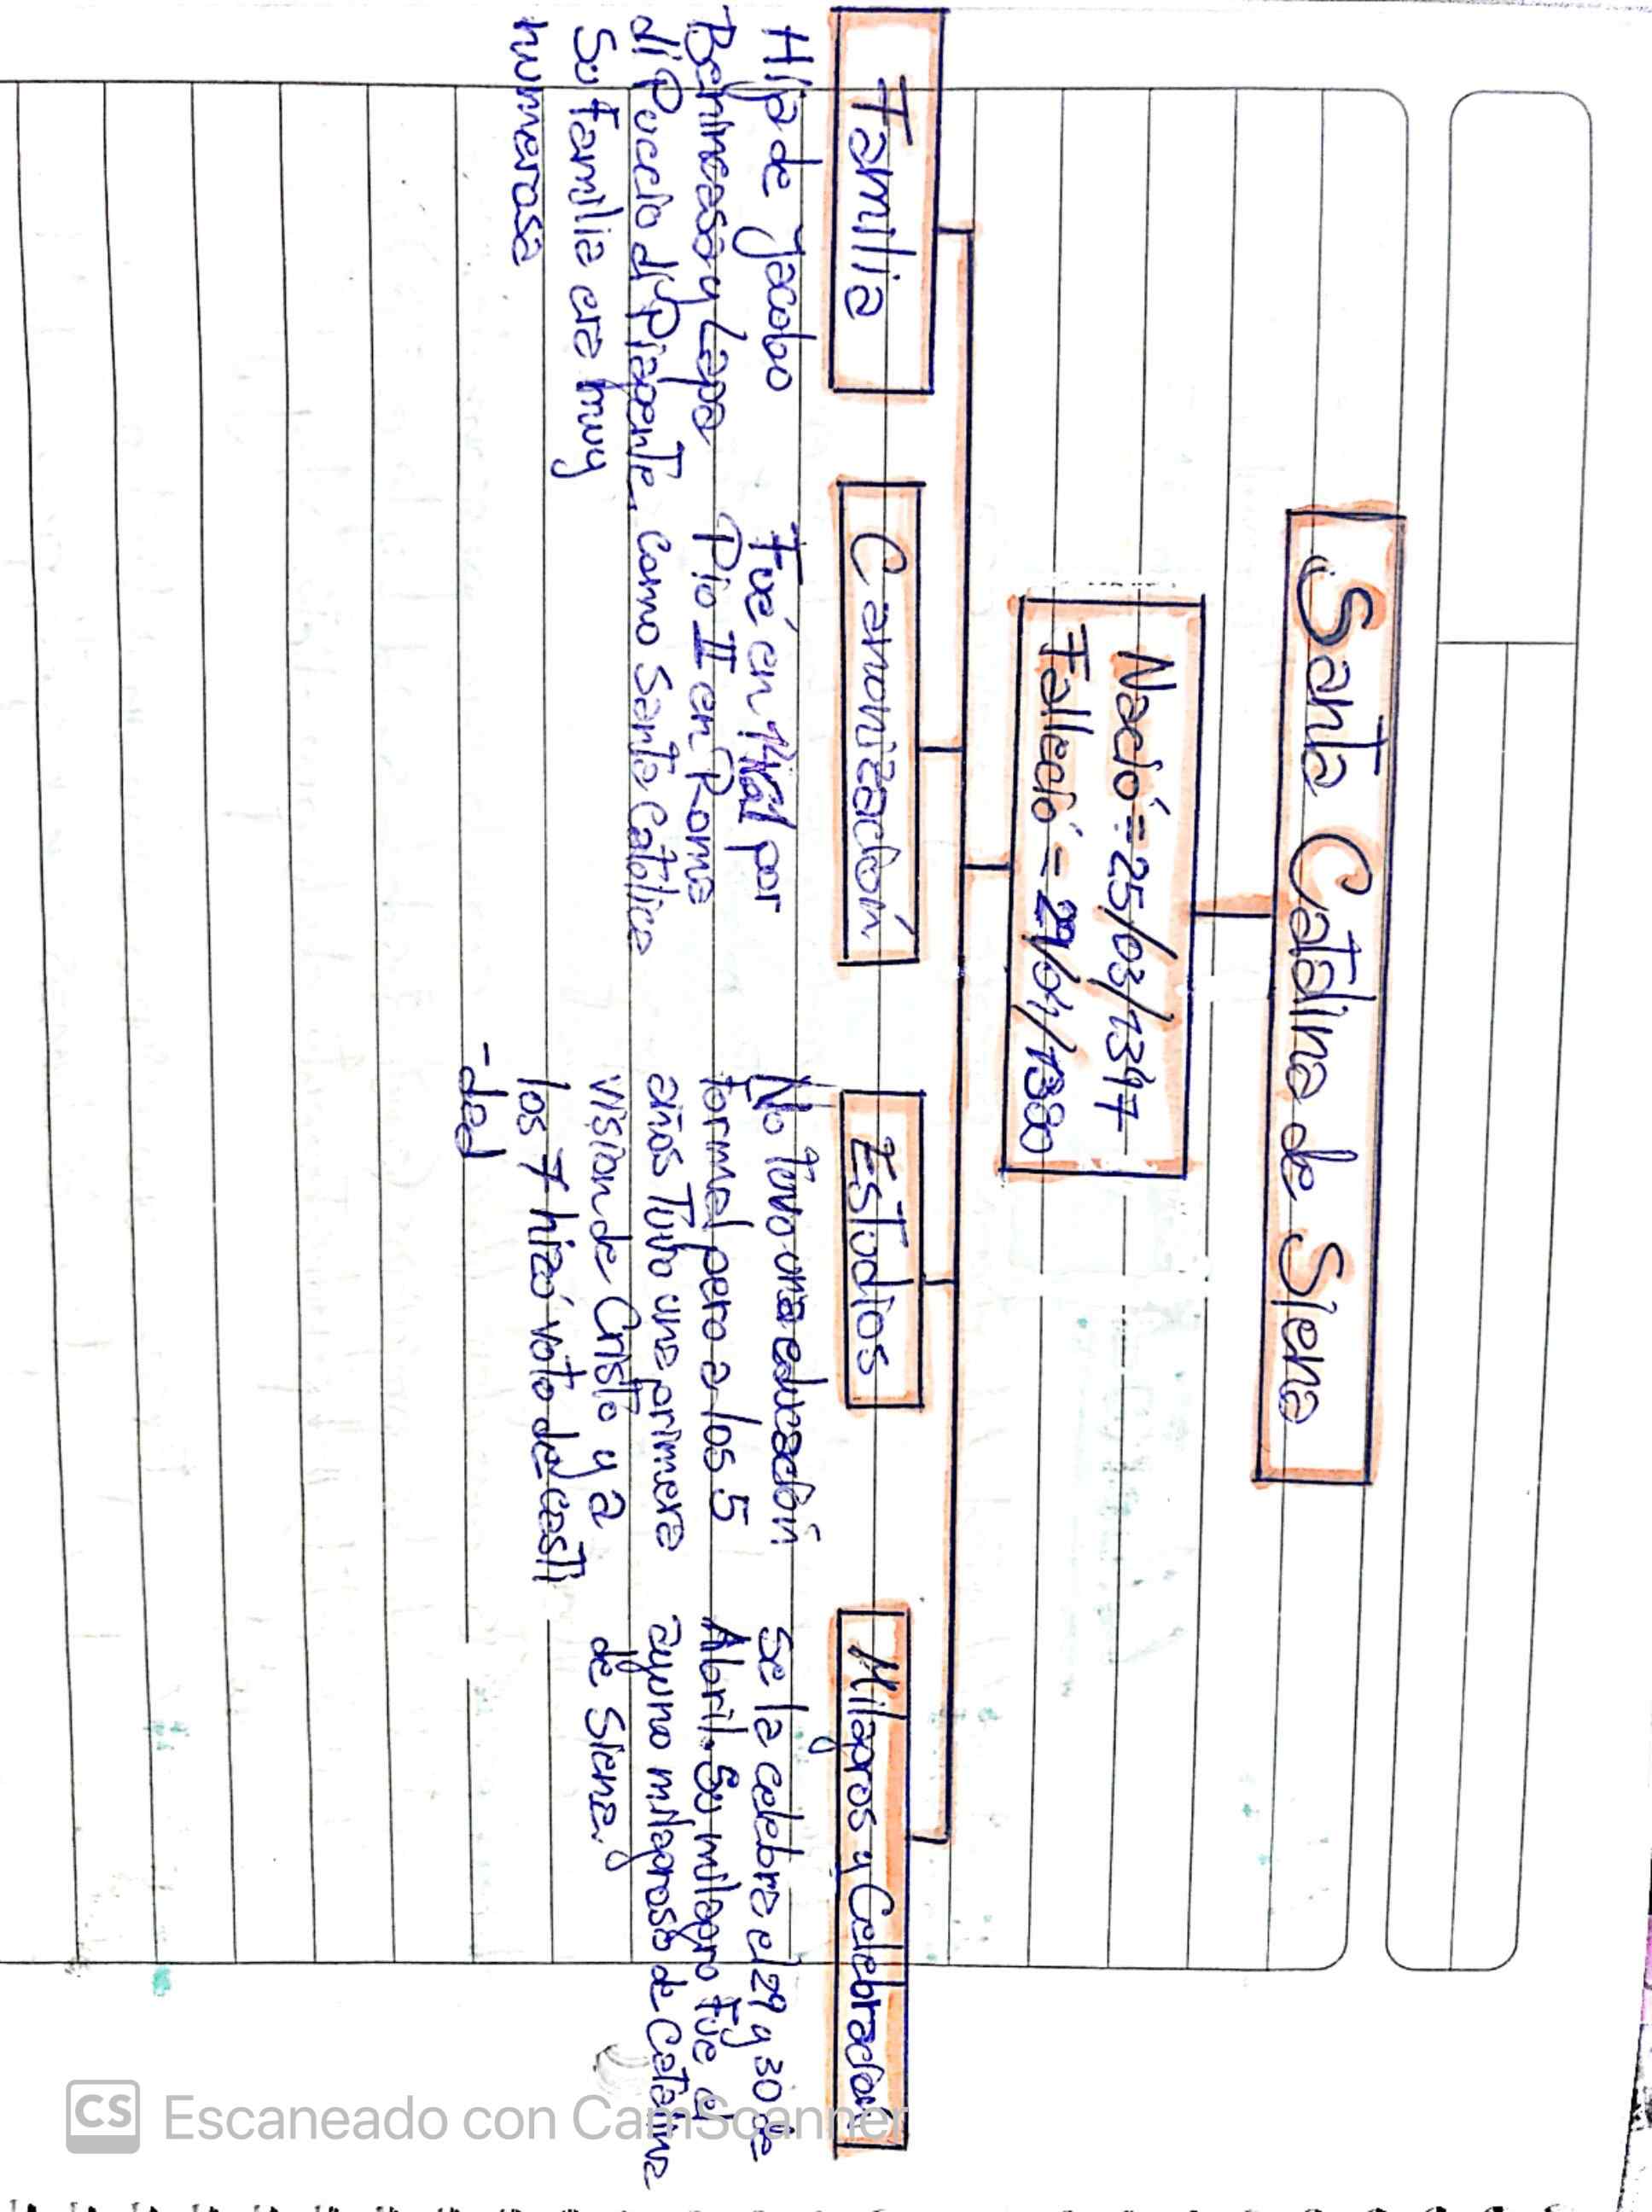 Santa Catalina de Siena
Nació = 25/03/1347
Falleció = 29/04/1380
Familia
Hija de Jacobo
Benincasa y Lapa
di Puccio di Piagente.
Su familia era muy
numerosa
Canonización
Fué en 1461 por
Pio II en Roma
como Santa Católica
Estudios
No tuvo una educación
formal pero a los 5
años Tuvo una primera
vision de Cristo y a
los 7 hizó voto de casti
-dad
Milagros y Celebración
Se le celebra el 29 y 30 de
Abril. Su milagro fue el
ayuno milagroso de Catalina
de Siena.
CS Escaneado con CamScanner